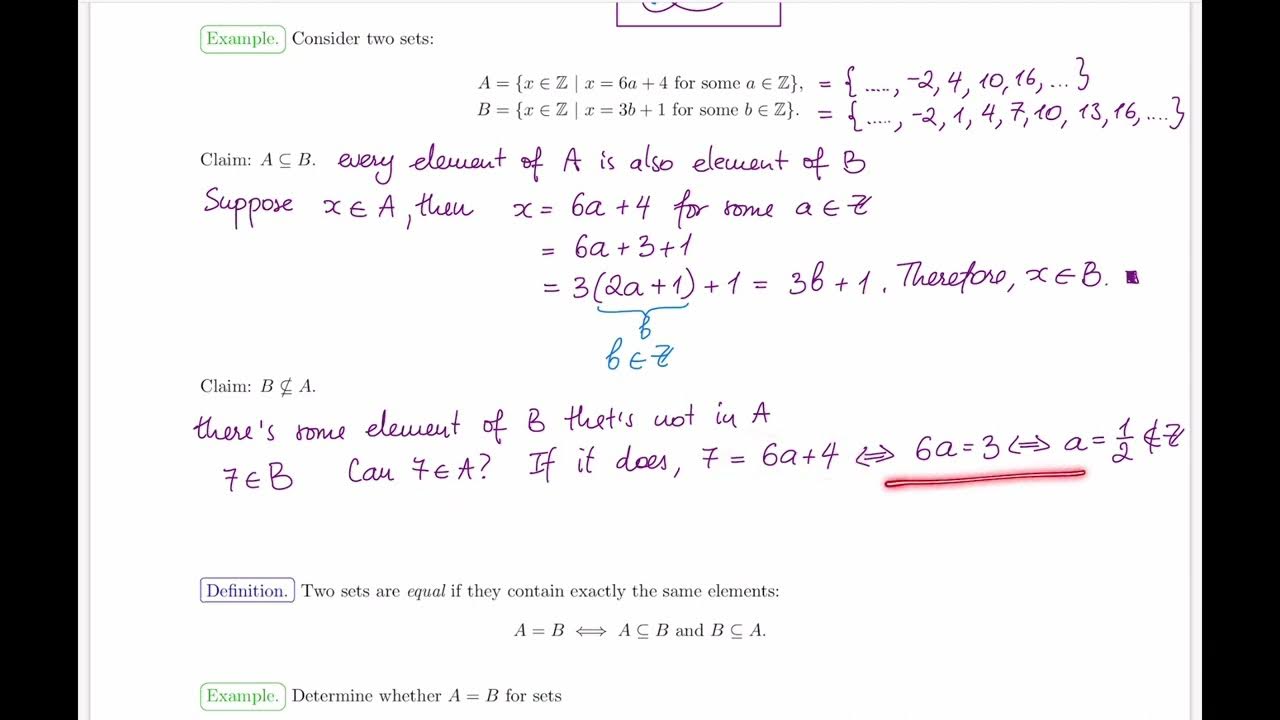 Example. Consider two sets:
A = {x ∈ ℤ | x = 6a + 4 for some a ∈ ℤ}, = {....., -2, 4, 10, 16, ...}
B = {x ∈ ℤ | x = 3b + 1 for some b ∈ ℤ}. = {....., -2, 1, 4, 7, 10, 13, 16, ....}
Claim: A ⊆ B. every element of A is also element of B
Suppose x ∈ A, then x = 6a + 4 for some a ∈ ℤ
= 6a + 3 + 1
= 3(2a + 1) + 1 = 3b + 1. Therefore, x ∈ B. ■
b
b ∈ ℤ
Claim: B ⊈ A.
there's some element of B that's not in A
7 ∈ B Can 7 ∈ A? If it does, 7 = 6a + 4 ⟺ 6a = 3 ⟺ a = 1/2 ∉ ℤ
Definition. Two sets are equal if they contain exactly the same elements:
A = B ⟺ A ⊆ B and B ⊆ A.
Example. Determine whether A = B for sets